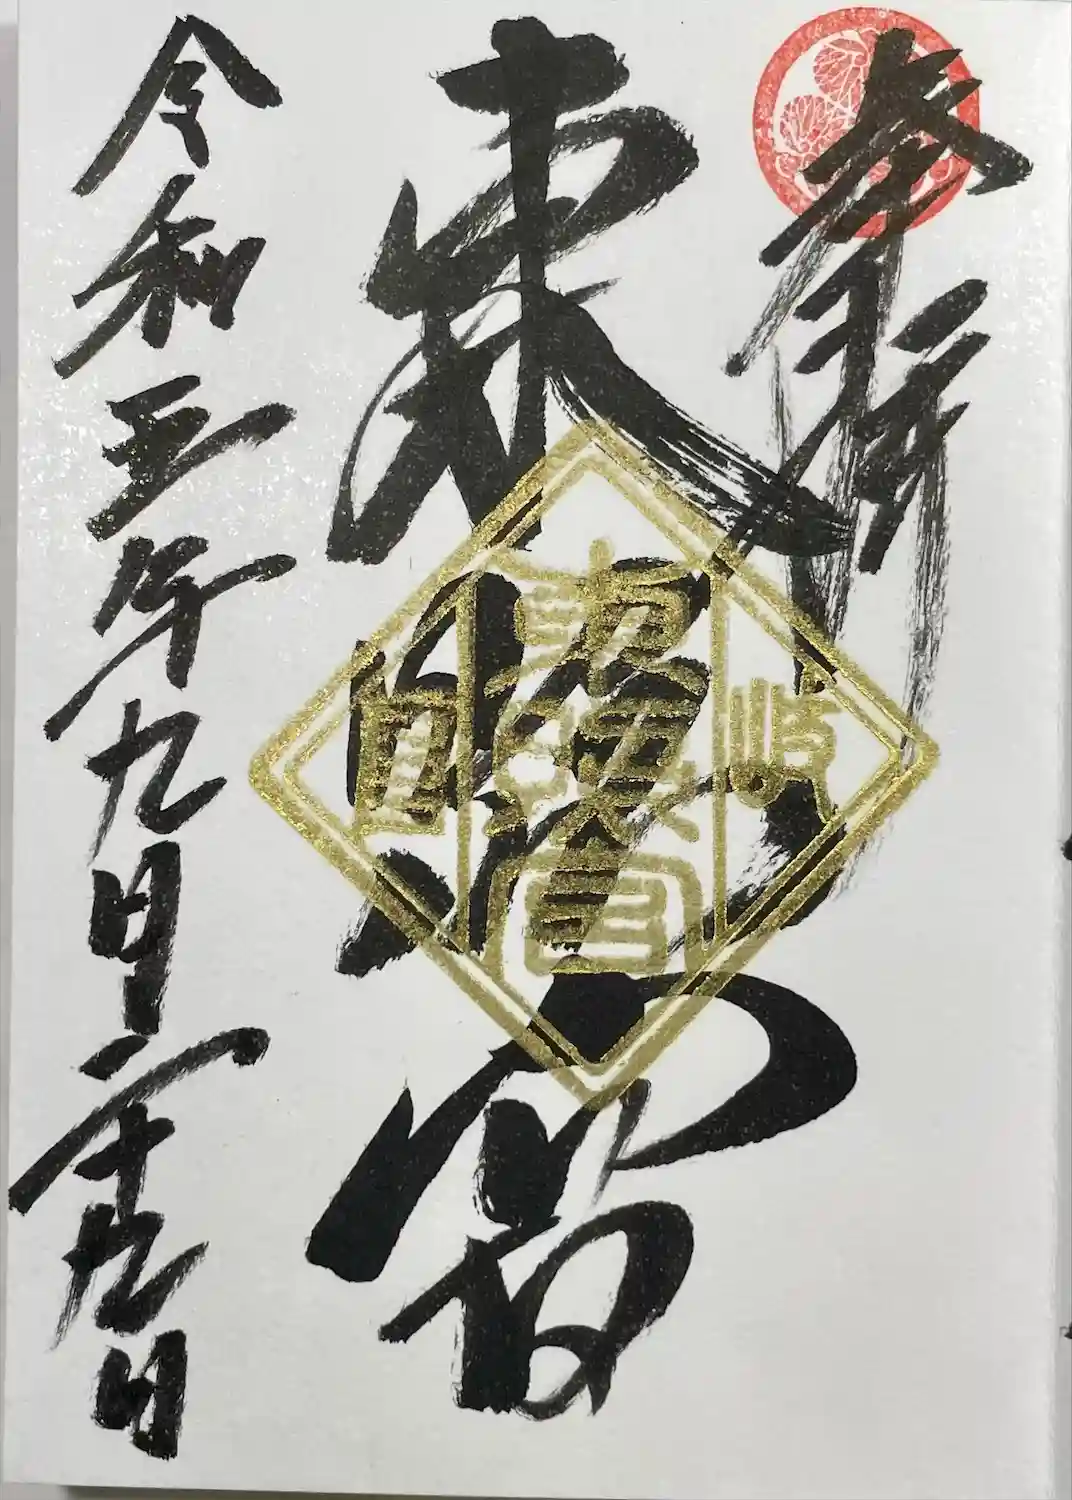 奉拝
東照宮
岡崎
東照宮
令和五年九月二十九日